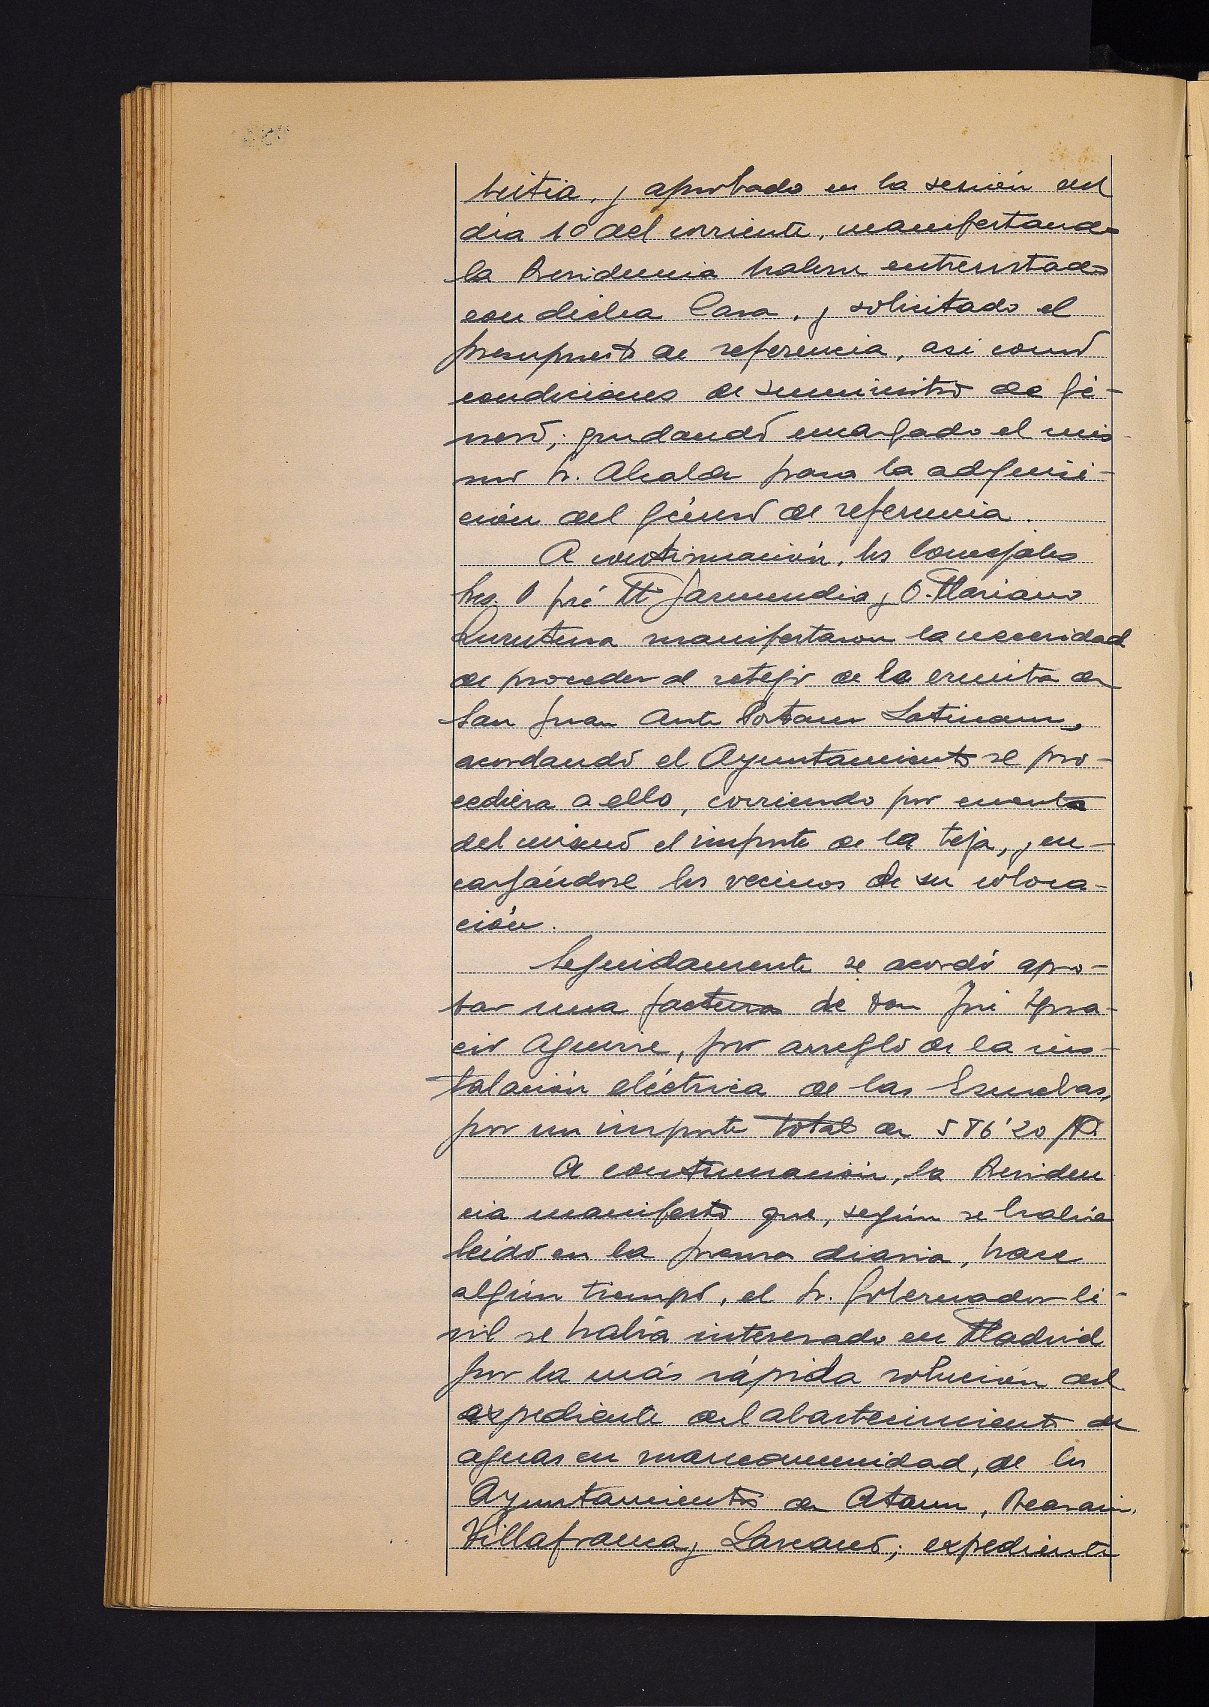 bistia, y aprobado en la sesión del
día 10 del corriente, manifestando
la Presidencia haberse entrevistado
con dicha Casa, y solicitado el
presupuesto de referencia, asi como
condiciones de suministro de gé-
nero; quedando encargado el mis-
mo Sr. Alcalde para la adquisi-
ción del género de referencia.
A continuación, los Concejales
Sres. D. José Mª Garmendia y D. Mariano
manifestaron la necesidad
de proceder al retejo de la ermita de
San Juan Ante Portam Latinam,
acordando el Ayuntamiento se pro-
cediera a ello, corriendo por cuenta
del mismo el importe de la teja, y en-
cargándose los vecinos de su coloca-
ción.
Seguidamente se acordó apro-
bar una factura de Don José Igna-
cio Aguirre, por arreglo de la ins-
talación eléctrica de las Escuelas,
por un importe total de 586'20 Pts.
A continuación, la Presiden
cia manifestó que, según se había
leído en la prensa diaria, hace
algún tiempo, el Sr. Gobernador Ci-
vil se había interesado en Madrid
por la más rápida solución del
expediente del abastecimiento de
aguas en mancomunidad, de los
Ayuntamientos de Ataun, Beasain,
Villafranca y Lazcano; expediente